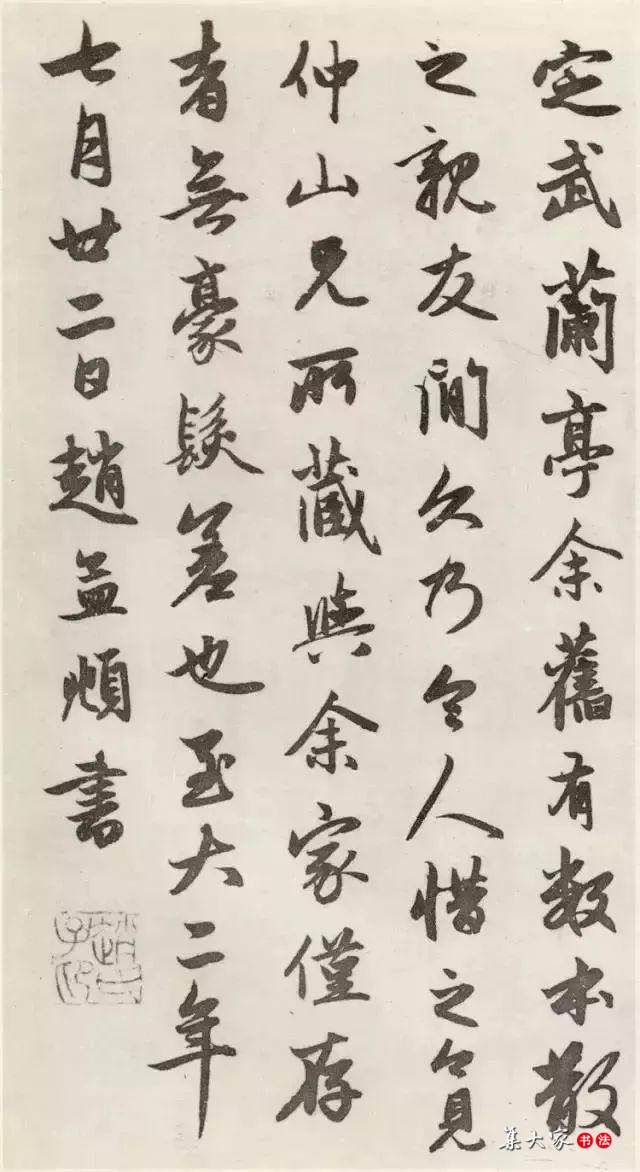 定武蘭亭余舊有數本散
之親友間久乃令人惜之今見
仲山兄所藏與余家僅存
者無豪髮差也至大二年
七月廿二日趙孟頫書
趙氏子昂
集大家书法